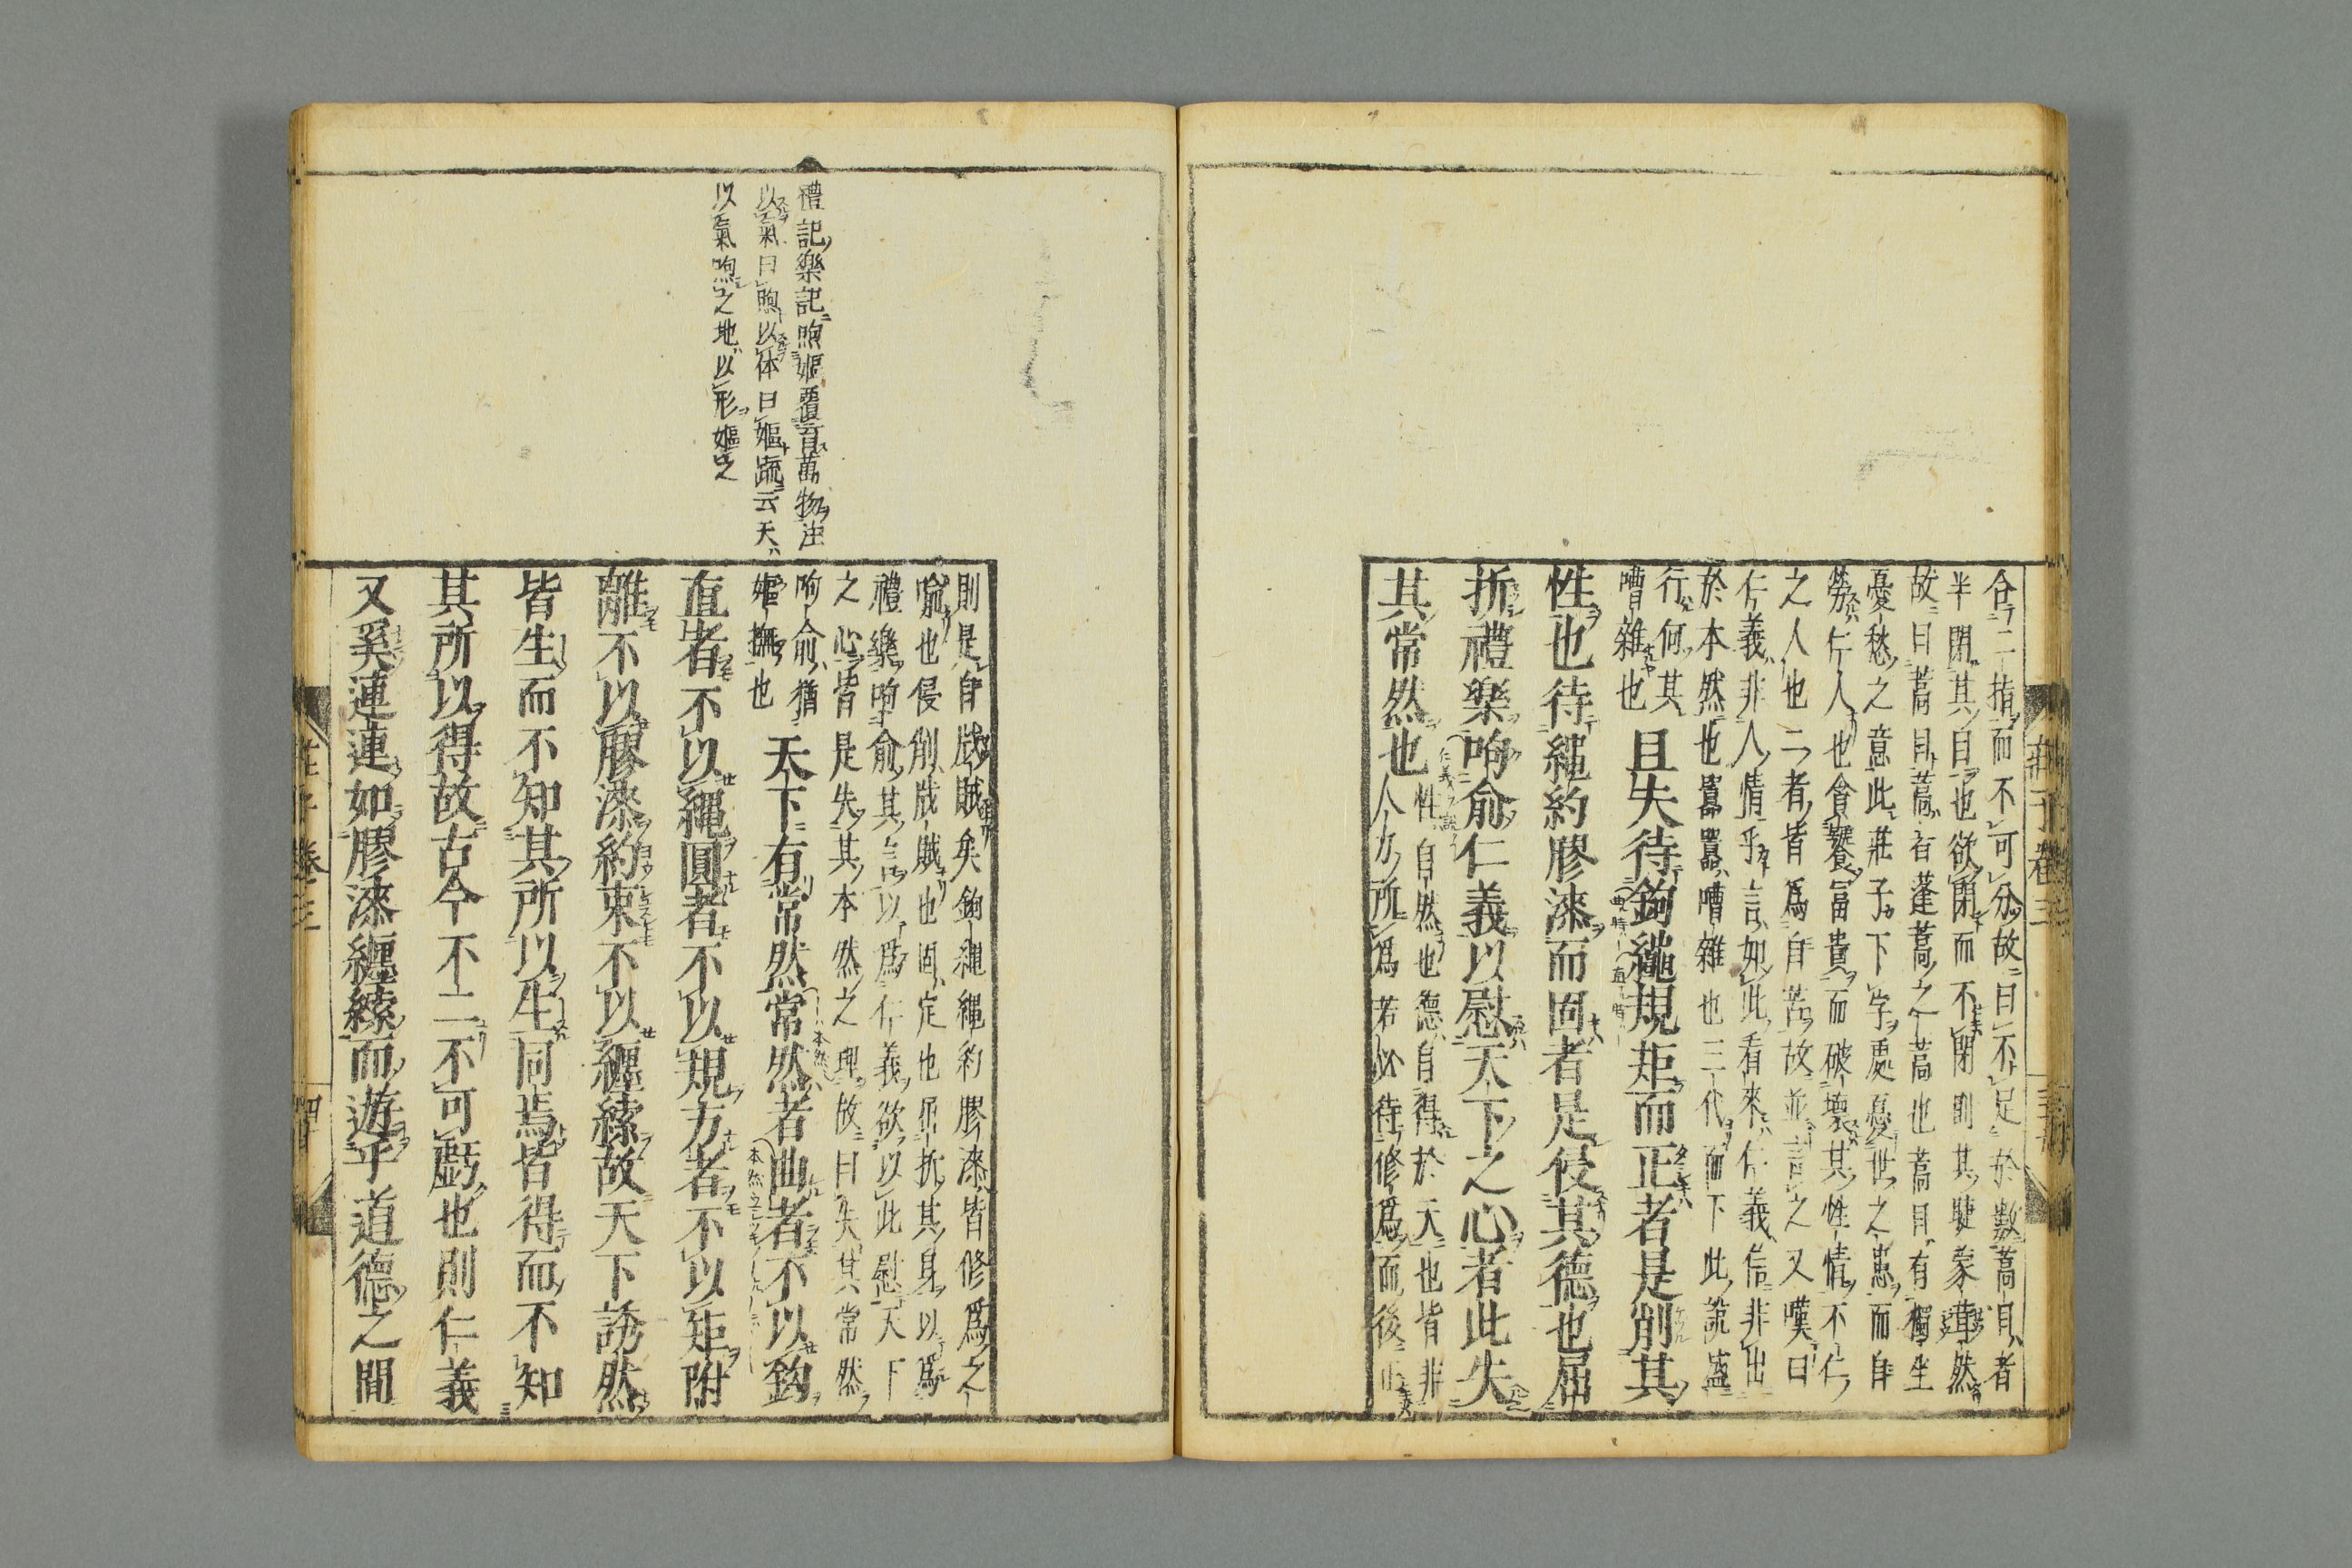 合二指而不可分故曰不足於數蒿目者
半閉其目也欲閉而不閉則其睫蒙茸然
故曰蒿目蒿者蓬蒿之蒿也蒿目有獨坐
憂愁之意此莊子下字處憂世之患而自
勞仁人也貪饕富貴而破壞其性情不仁
之人也二者皆爲自苦故並言之又嘆曰
仁義非人情乎言如此看來仁義信非出
於本然也囂囂嘈雜也三代而下此說盛
行何其
嘈雜也
且失待鉤繩規矩而正者是削其
性也待繩約膠漆而固者是侵其德也屈
折禮樂呴俞仁義以慰天下之心者此失
其常然也
性自然也德自得於天也皆非
人力所爲若必待修爲而後正
則是自戕賊矣鉤繩繩約膠漆皆修爲之
喻也侵削戕賊也固定也屈折其身以爲
禮樂呴俞其言以爲仁義欲以此慰天下
之心皆是失其本然之理故曰失其常然
呴俞猶
嫗撫也
天下有常然常然者曲者不以鉤
直者不以繩圓者不以規方者不以矩附
離不以膠漆約束不以纆索故天下誘然
皆生而不知其所以生同焉皆得而不知
其所以得故古今不二不可虧也則仁義
又奚連連如膠漆纆索而遊乎道德之間
禮記樂記煦嫗覆育萬物注
以氣曰煦以体曰嫗疏云天
以氣煦之地以形嫗之